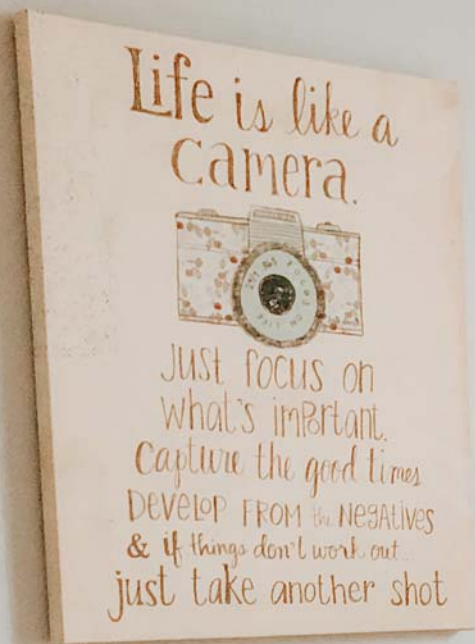 Life is like a
camera.
FOCUS ON LIFE
just focus on
what's important.
Capture the good times
DEVELOP FROM the NEGATIVES
& if things don't work out...
just take another shot